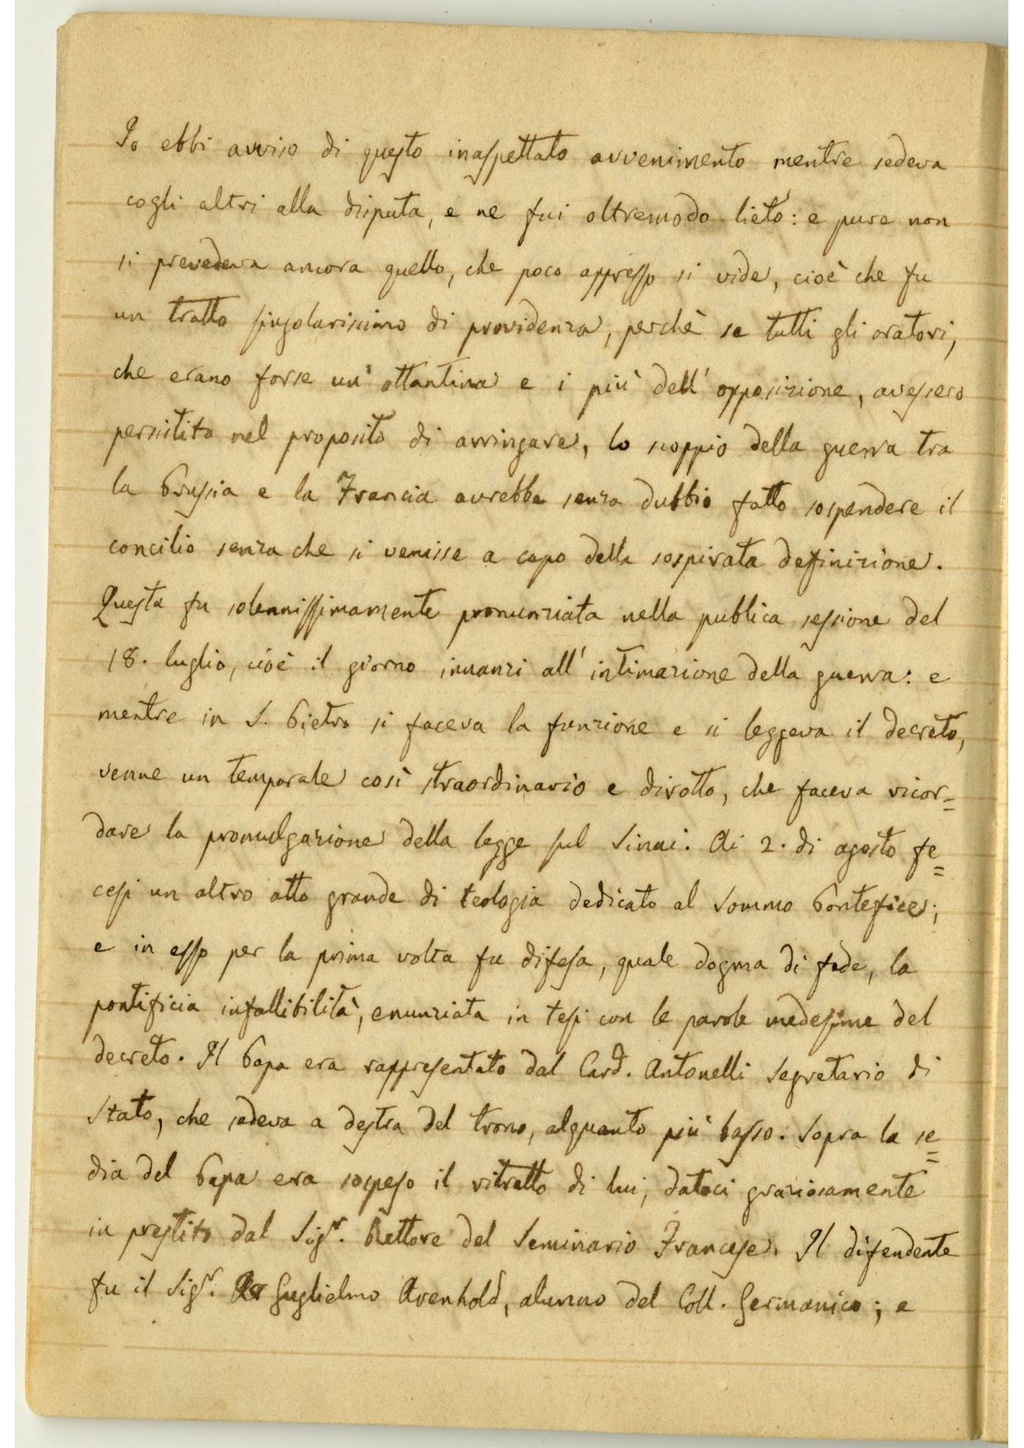 Io ebbi avviso di questo inaspettato avvenimento mentre sedeva
cogli altri alla disputa, e ne fui oltremodo lieto: e pure non
si prevedeva ancora quello, che poco appresso si vide, cioè che fu
un tratto singolarissimo di providenza, perchè se tutti gli oratori,
che erano forse un' ottantina e i più dell' opposizione, avessero
persistito nel proposito di arringare, lo scoppio della guerra tra
la Prussia e la Francia avrebbe senza dubbio fatto sospendere il
concilio senza che si venisse a capo della sospirata definizione.
Questa fu solennissimamente pronunziata nella publica sessione del
18. luglio, cioè il giorno innanzi all' intimazione della guerra: e
mentre in S. Pietro si faceva la funzione e si leggeva il decreto,
venne un temporale così straordinario e dirotto, che faceva ricor=
dare la promulgazione della legge sul Sinai. Ai 2. di agosto fe=
cesi un altro atto grande di teologia dedicato al Sommo Pontefice;
e in esso per la prima volta fu difesa, quale dogma di fede, la
pontificia infallibilità, enunziata in tesi con le parole medesime del
decreto. Il Papa era rappresentato dal Card. Antonelli Segretario di
Stato, che sedeva a destra del trono, alquanto più basso. Sopra la se=
dia del Papa era sospeso il ritratto di lui, datoci graziosamente
in prestito dal Sigr. Rettore del Seminario Francese. Il difendente
fu il Sigr. Guglielmo Arenhold, alunno del Coll. Germanico; e